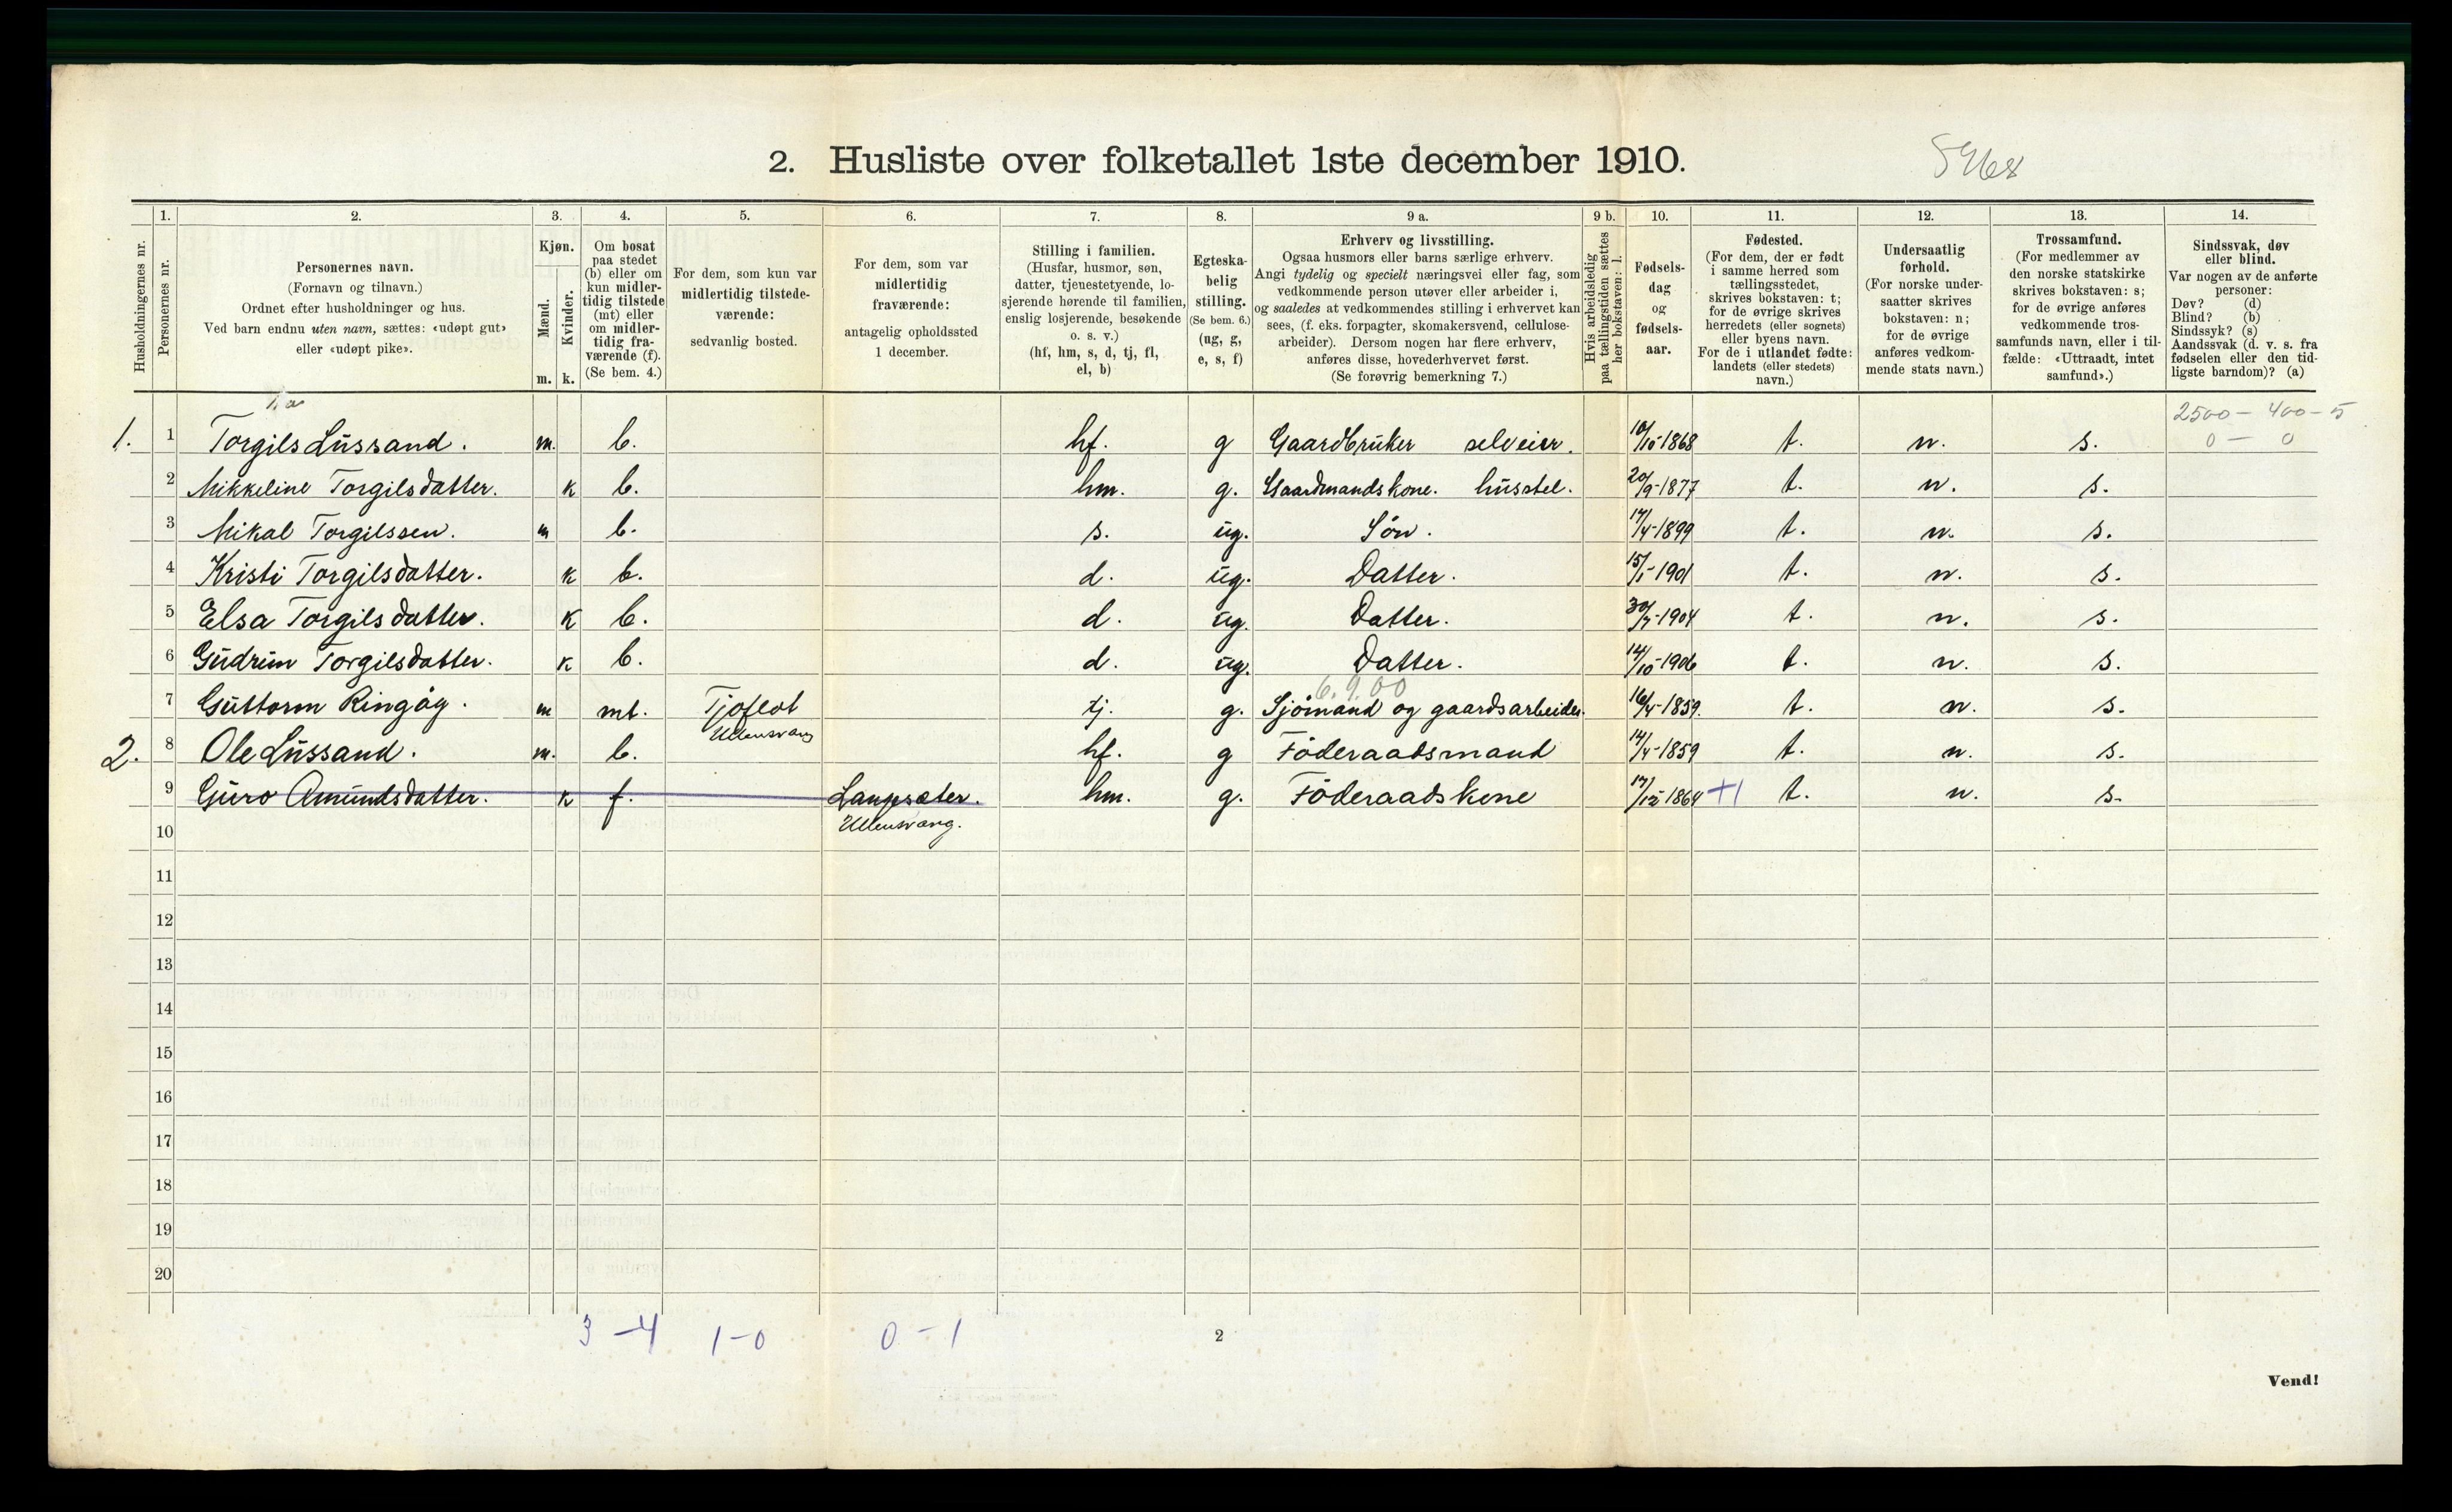 2. Husliste over folketallet 1ste december 1910.
1. 2. 3. 4. 5. 6. 7. 8. 9 a. 9 b. 10. 11. 12. 13. 14.
Husholdningernes nr.
Personernes nr.
Personernes navn.
(Fornavn og tilnavn.)
Ordnet efter husholdninger og hus.
Ved barn endnu uten navn, sættes: «udøpt gut»
eller «udøpt pike».
Kjøn.
Mænd.
Kvinder.
m. k.
Om bosat
paa stedet
(b) eller om
kun midler-
tidig tilstede
(mt) eller
om midler-
tidig fra-
værende (f).
(Se bem. 4.)
For dem, som kun var
midlertidig tilstede-
værende:
sedvanlig bosted.
For dem, som var
midlertidig
fraværende:
antagelig opholdssted
1 december.
Stilling i familien.
(Husfar, husmor, søn,
datter, tjenestetyende, lo-
sjerende hørende til familien,
enslig losjerende, besøkende
o. s. v.)
(hf, hm, s, d, tj, fl,
el, b)
Egteska-
belig
stilling.
(Se bem. 6.)
(ug, g,
e, s, f)
Erhverv og livsstilling.
Ogsaa husmors eller barns særlige erhverv.
Angi tydelig og specielt næringsvei eller fag, som
vedkommende person utøver eller arbeider i,
og saaledes at vedkommendes stilling i erhvervet kan
sees, (f. eks. forpagter, skomakersvend, cellulose-
arbeider). Dersom nogen har flere erhverv,
anføres disse, hovederhvervet først.
(Se forøvrig bemerkning 7.)
Hvis arbeidsledig
paa tællingstiden sættes
her bokstaven: l.
Fødsels-
dag
og
fødsels-
aar.
Fødested.
(For dem, der er født
i samme herred som
tællingsstedet,
skrives bokstaven: t;
for de øvrige skrives
herredets (eller sognets)
eller byens navn.
For de i utlandet fødte:
landets (eller stedets)
navn.)
Undersaatlig
forhold.
(For norske under-
saatter skrives
bokstaven: n;
for de øvrige
anføres vedkom-
mende stats navn.)
Trossamfund.
(For medlemmer av
den norske statskirke
skrives bokstaven: s;
for de øvrige anføres
vedkommende tros-
samfunds navn, eller i til-
fælde: «Uttraadt, intet
samfund».)
Sindssvak, døv
eller blind.
Var nogen av de anførte
personer:
Døv? (d)
Blind? (b)
Sindssyk? (s)
Aandssvak (d. v. s. fra
fødselen eller den tid-
ligste barndom)? (a)
2500 – 400 – 5
0 – 0
1. 1 Torgils Lussand. m. b. hf. g Gaardbruker selveier. 10/10-1868 t. n. s.
2 Mikkeline Torgilsdatter. k b. hm. g. Gaardmandskone. husstel. 20/9-1877 t. n. s.
3 Mikal Torgilssen. m b. s. ug. Søn. 17/4-1899 t. n. s.
4 Kristi Torgilsdatter. k b. d. ug. Datter. 15/1-1901 t. n. s.
5 Elsa Torgilsdatter. k b. d. ug. Datter. 30/7-1904 t. n. s.
6 Gudrun Torgilsdatter. k b. d. ug. Datter. 14/10-1906 t. n. s.
6.9.00
7 Guttorm Ringøy. m mt. Tjoflot tj. g. Sjömand og gaardsarbeider. 16/4-1859. t. n. s.
Ullensvang
2. 8 Ole Lussand. m. b. hf. g Föderaadsmand 14/4-1859 t. n. s.
9 Guro Amundsdatter. k f. Langesæter. hm. g. Föderaadskone 17/12-1864 +1 t. n. s.
Ullensvang.
10
11
12
13
14
15
16
17
18
19
20
3 – 4 1 – 0 0 – 1
2
Vend!